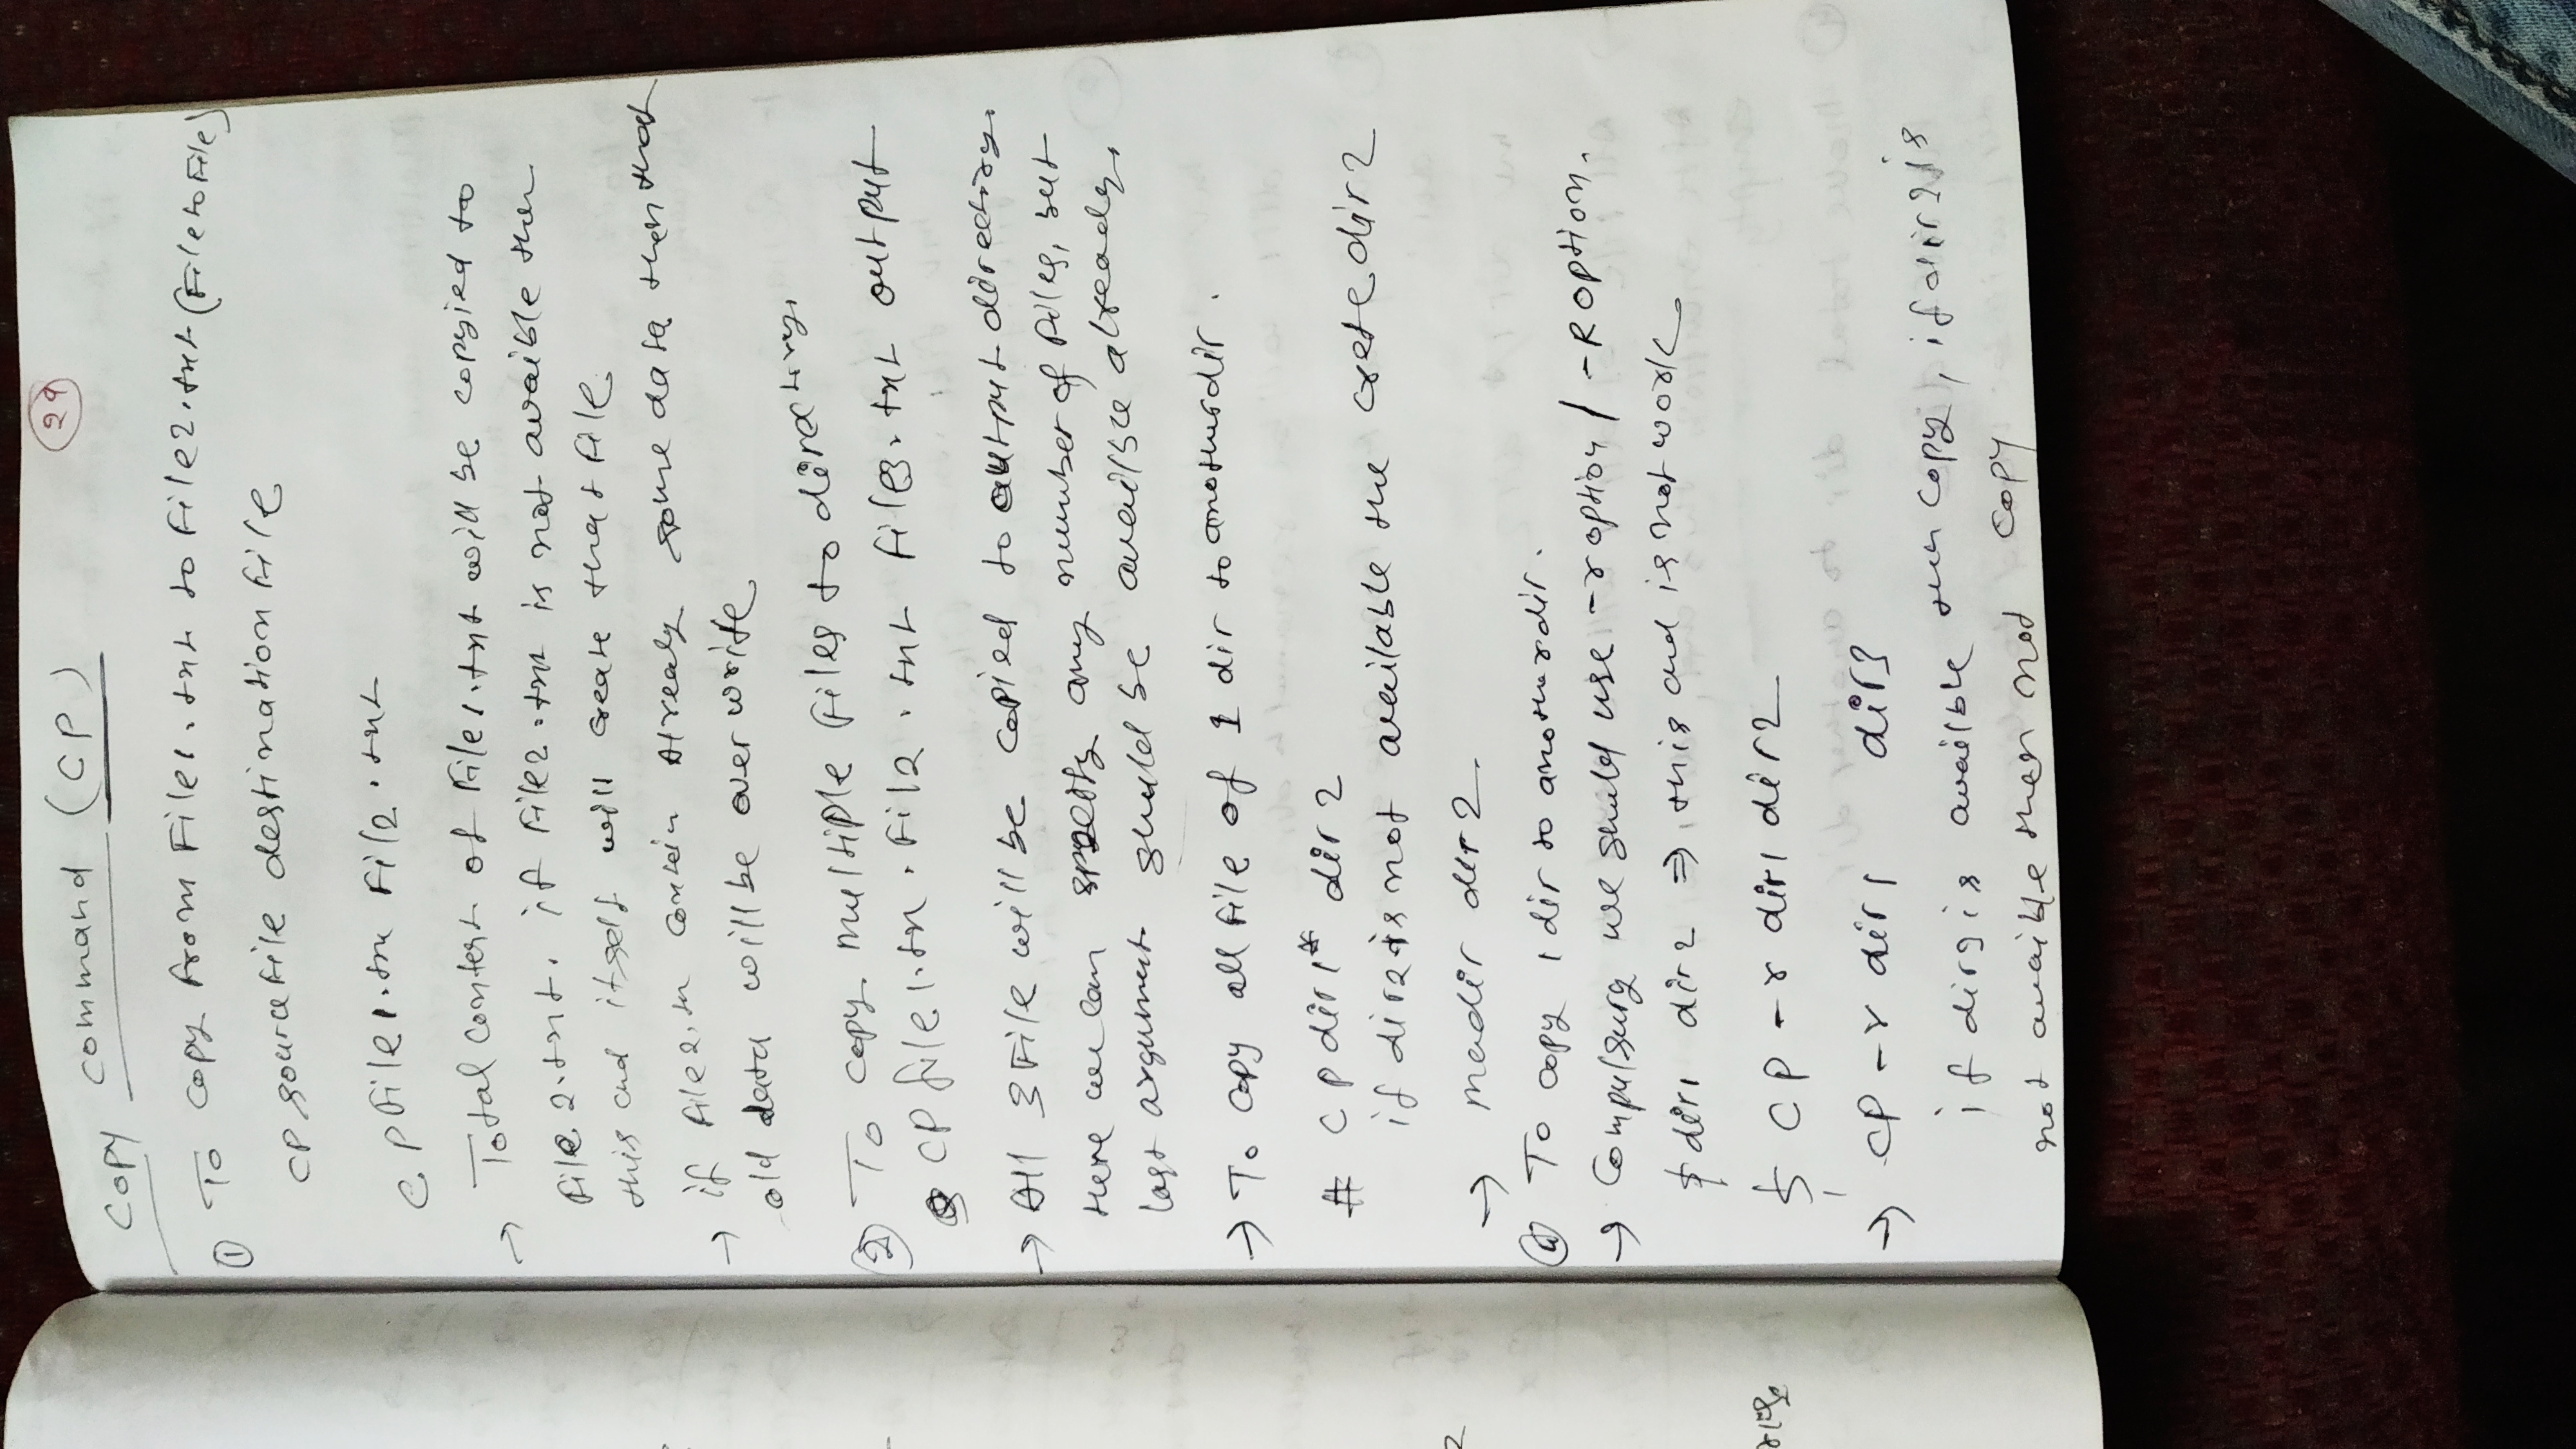 29
Copy command (CP)
① To copy from File1.txt to File2.txt (File to File)
CP source file destination file
CP file1.tx Fil2.txt
→ Total content of File1.txt will be copyied to
file2.txt. if File2.txt is not avaible then
this cmd itself will create that file
→ if file2.tx contain Already some data then that
old data will be over write
② To copy multiple files to directory.
CP file1.tx . Fil2.txt file3.txt output
→ All 3 File will be copied to output directory.
Here we can specify any number of files, but
last argument should be availble already.
→ To copy all file of 1 dir to another dir.
# CP dir1* dir2
if dir2 is not available the crete dir2
→ madir dir2.
④ To copy 1 dir to another dir.
→ Compulsury we should use -r option / -R option.
$ dir1 dir2 ⇒ this cmd is not work
$ CP -r dir1 dir2
→ CP -r dir1 dir3
if dir3 is availble then copy, if dir3 is
not avaible then not copy
2